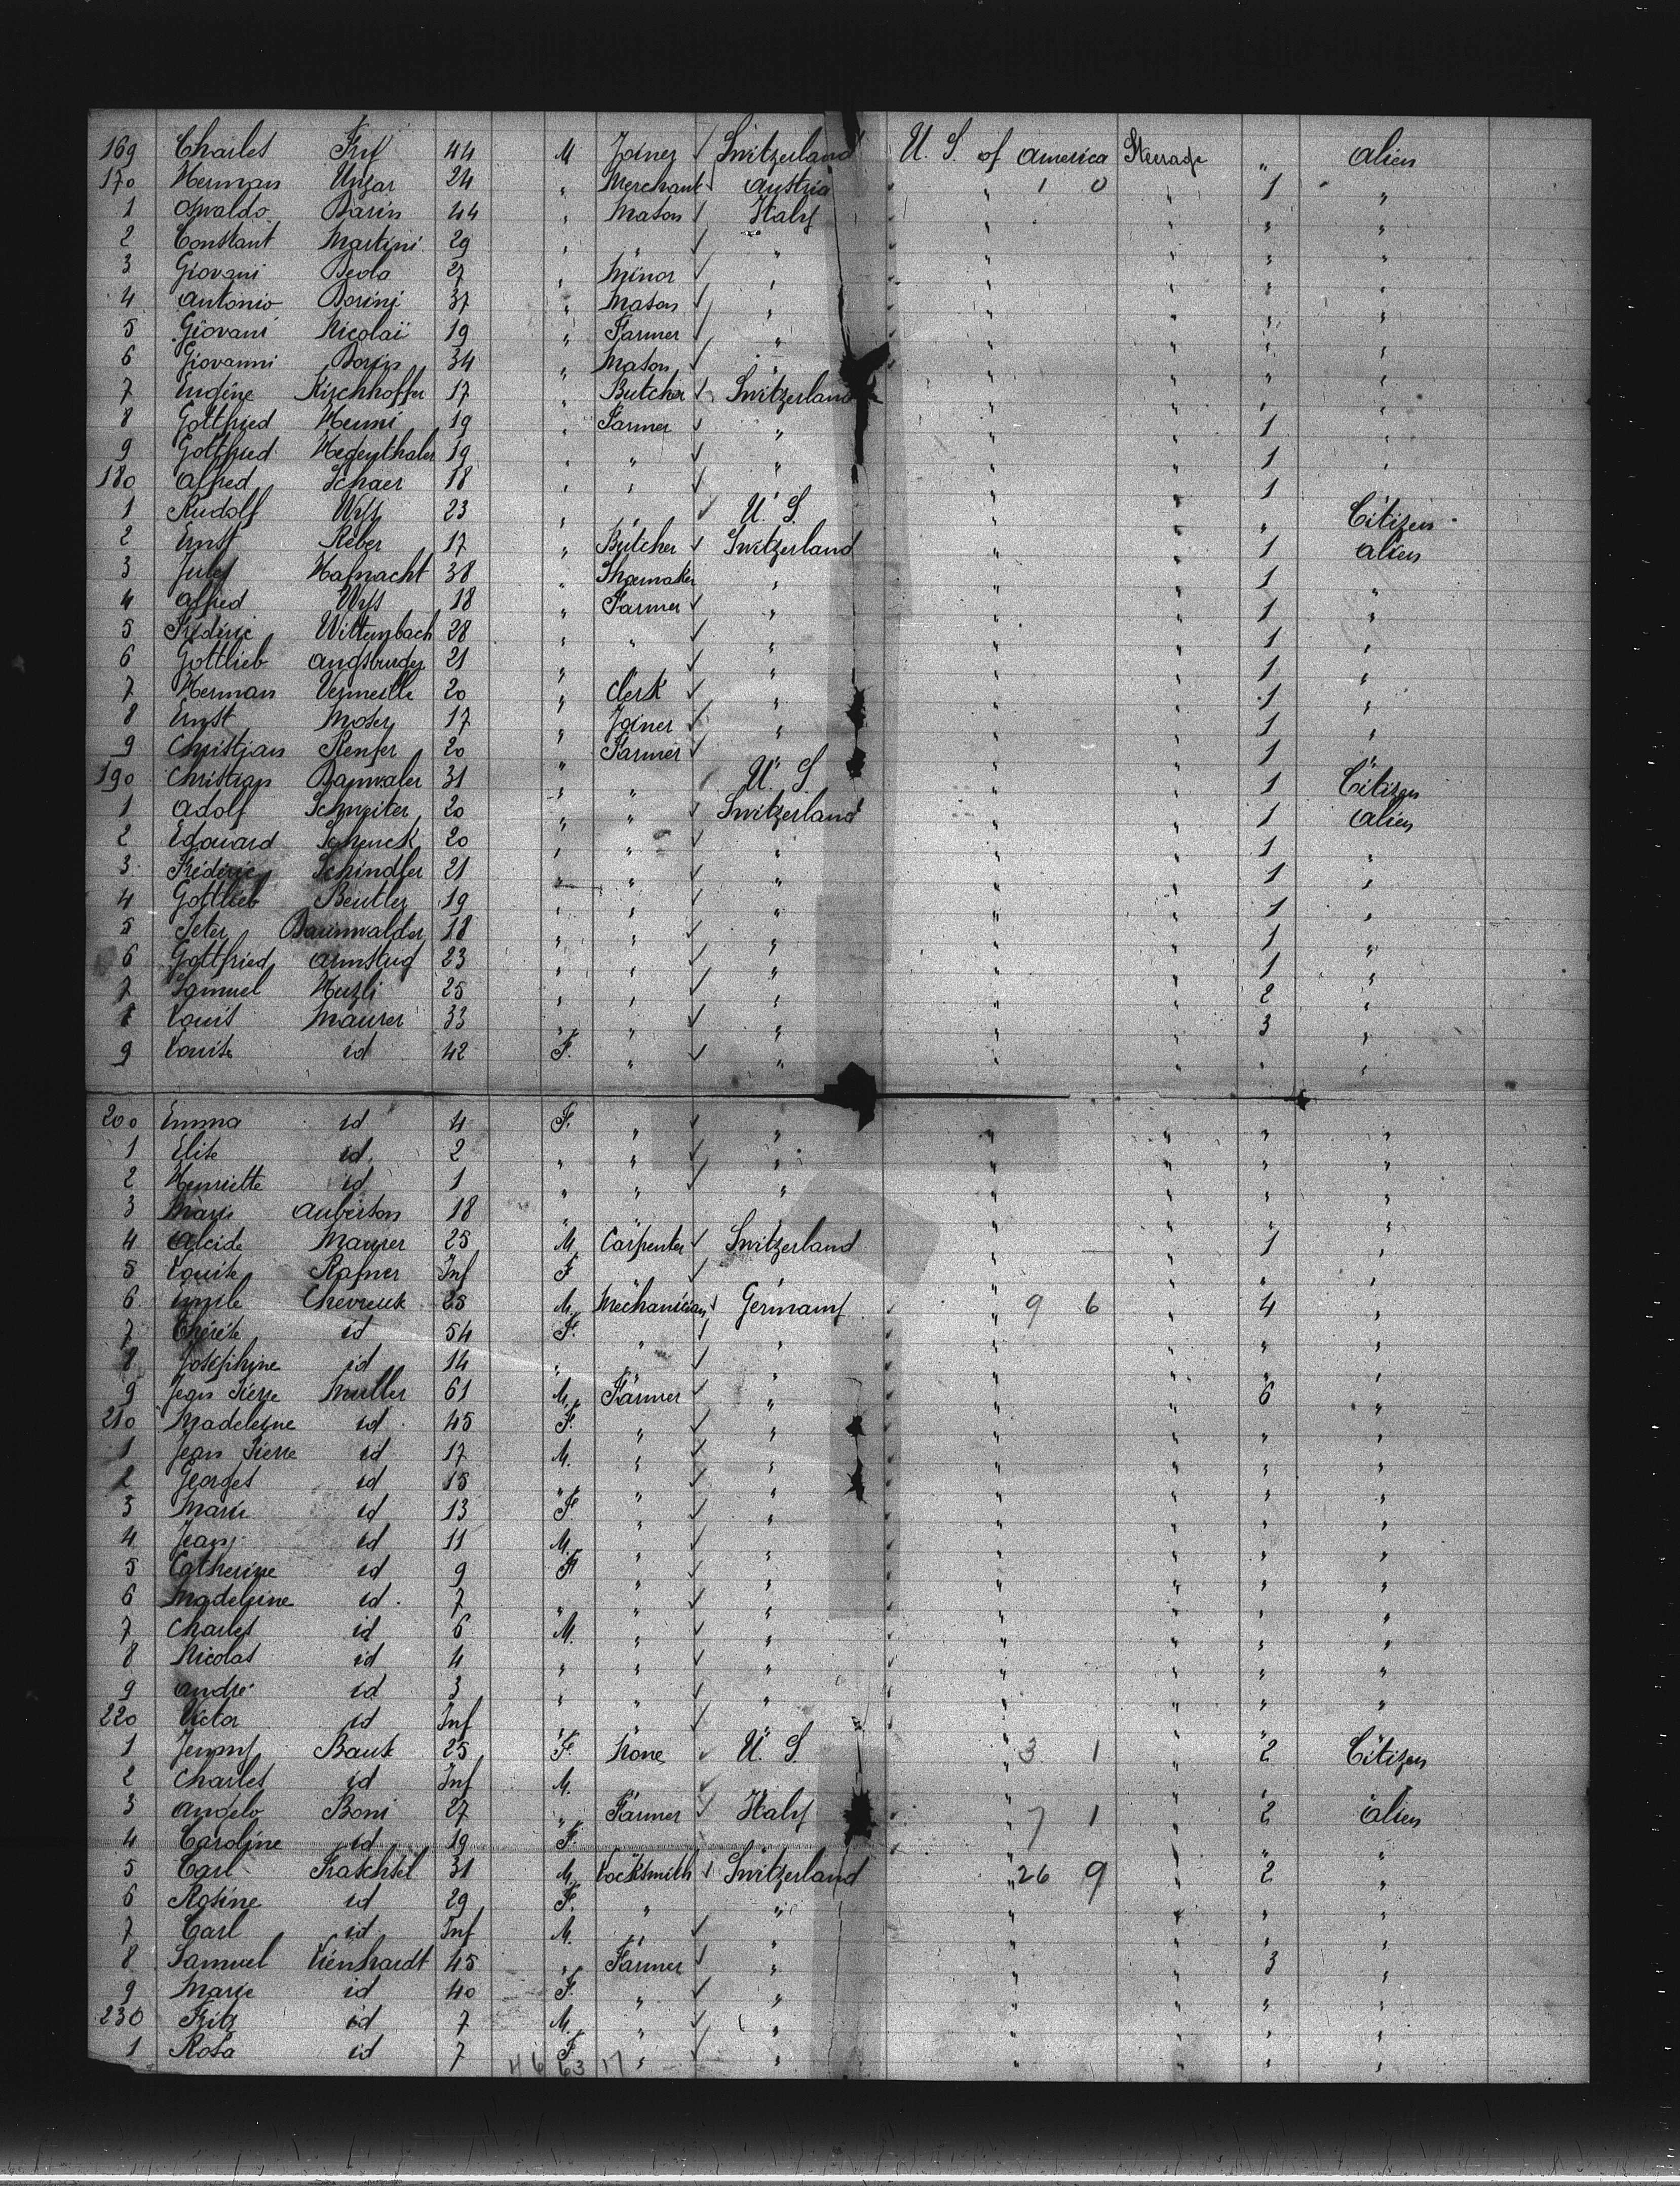 169 Charles Frif 44 M Joiner ✓ Switzerland U. S. of America Steerage " Alien
170 Herman Ungar 24 " Merchant ✓ Austria " 1 0 " 1 "
1 Osvaldo Darin 44 " Mason ✓ Italy " " " "
2 Constant Martini 29 " " ✓ " " " " "
3 Giovani Deola 27 " Minor ✓ " " " " "
4 Antonio Dorini 37 " Mason ✓ " " " " "
5 Giovani Nicolaï 19 " Farmer ✓ " " " " "
6 Giovanni Dorin 34 " Mason ✓ " " " " "
7 Eugène Kirchhoffer 17 " Butcher ✓ Switzerland " " " "
8 Gottfried Henni 19 " Farmer ✓ " " " 1 "
9 Gottfried Hegenthaler 19 " " ✓ " " " 1 "
180 Alfred Schaer 18 " " ✓ " " 1
1 Rudolf Wyss 23 " " ✓ U. S. " " " Citizen
2 Ernst Reber 17 " Butcher ✓ Switzerland " " 1 Alien
3 Jules Hafnacht 38 " Shoemaker " " " 1 "
4 Alfred Wyss 18 " Farmer ✓ " " " 1 "
5 Fréderic Wittenbach 28 " " ✓ " " " 1 "
6 Gottlieb Augsburger 21 " ✓ " " " 1 "
7 Herman Vermeille 20 " Clerk ✓ " " " 1 "
8 Ernst Moser 17 " Joiner ✓ " " " 1 "
9 Christian Renfer 20 " Farmer ✓ " " 1 "
190 Christian Banwaler 31 " " U. S. " " 1 Citizen
1 Adolf Schweiter 20 " " ✓ Switzerland " " 1 Alien
2 Edouard Schenck 20 " " ✓ " " " 1 "
3 Fréderic Schindler 21 " " ✓ " " " 1 "
4 Gottlieb Beutler 19 " " ✓ " " " 1 "
5 Peter Baumwalder 18 " " ✓ " " " 1 "
6 Gottfried Amstud 23 " " ✓ " " " 1 "
7 Samuel Huzli 25 " " ✓ " " " 2 "
8 Louis Maurer 33 " " ✓ " " " 3 "
9 Louise id 42 F. " ✓ " " " " "
200 Emma id 4 F. " ✓ " " " " "
1 Elise id. 2 " " ✓ " " " " "
2 Henriette id 1 " " ✓ " " " " "
3 Marie Auberson 18 " " " " " "
4 Alcide Maurer 25 M. Carpenter ✓ Switzerland " " 1 "
5 Louise Rafner Inf F ✓ " " " "
6 Emile Chevreux 25 M. Mechanician ✓ Germany " 9 6 " 4 "
7 Thérése id 54 F. " ✓ " " " " "
8 Joséphine id 14 " " ✓ " " " " "
9 Jean Pierre Muller 61 M. Farmer ✓ " " " 6 "
210 Madeleine id 45 F. " ✓ " " " " "
1 Jean Pierre id 17 M. " ✓ " " " " "
2 Georges id 15 " " ✓ " " " " "
3 Marie id 13 F " ✓ " " " " "
4 Jean id 11 M. " ✓ " " " " "
5 Catherine id 9 F " ✓ " " " " "
6 Madeleine id. 7 " " ✓ " " " " "
7 Charles id 6 M. " ✓ " " " " "
8 Nicolas id 4 " " ✓ " " " " "
9 André id 3 " " ✓ " " " " "
220 Victor id Inf " " ✓ " " " "
1 Jenny Baut 25 F. None ✓ U. S. " 3 1 " 2 Citizen
2 Charles id Inf M. ✓ " " "
3 Angelo Boni 27 " Farmer ✓ Italy " 7 1 " 2 Alien
4 Caroline id 19 F. " " " "
5 Carl Fraschsel 31 M. Locksmith ✓ Switzerland " 26 9 " 2 "
6 Rosine id 29 F. " " " " " "
7 Carl id Inf M. " ✓ " " " " "
8 Samuel Lienhardt 45 " Farmer ✓ " " " 3 "
9 Marie id 40 F. " ✓ " " " " "
230 Fritz id 7 M. " ✓ " " " " "
1 Rosa id 7 F. " ✓ " " " " "
46 63 17